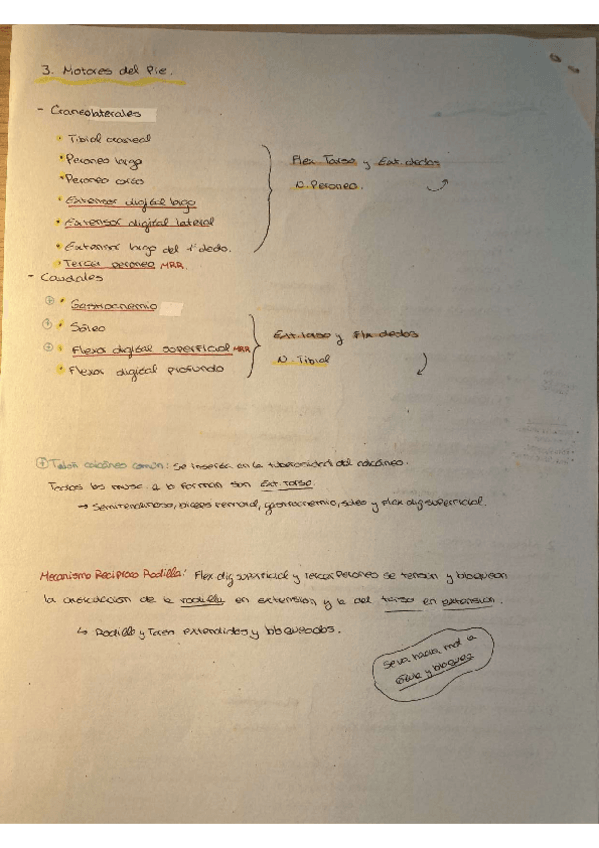 3. Motores del Pie.
- Craneolaterales
• Tibial craneal
• Peroneo largo
• Peroneo corto
• Extensor digital largo
• Extensor digital lateral
• Extensor largo del 1º dedo.
• Tercer peroneo MRR.
Flex Tarso y Ext. dedos
N. Peroneo.
- Caudales
+ • Gastrocnemio
+ • Sóleo
+ • Flexor digital superficial MRR
• Flexor digital profundo
Ext. tarso y Flx dedos
N. Tibial
+ Talón calcáneo común: Se inserta en la tuberosidad del calcáneo.
Todos los musc q lo forman son Ext. Tarso.
→ Semitendinoso, biceps femoral, gastrocnemio, sóleo y flex dig superficial.
Mecanismo Reciproco Rodilla: Flex dig superficial y tercer Peroneo se tensan y bloquean
la articulación de la rodilla en extensión y la del tarso en extensión.
↳ Rodilla y Tarso extendidos y bloqueados.
Se va hacia la
y bloquea